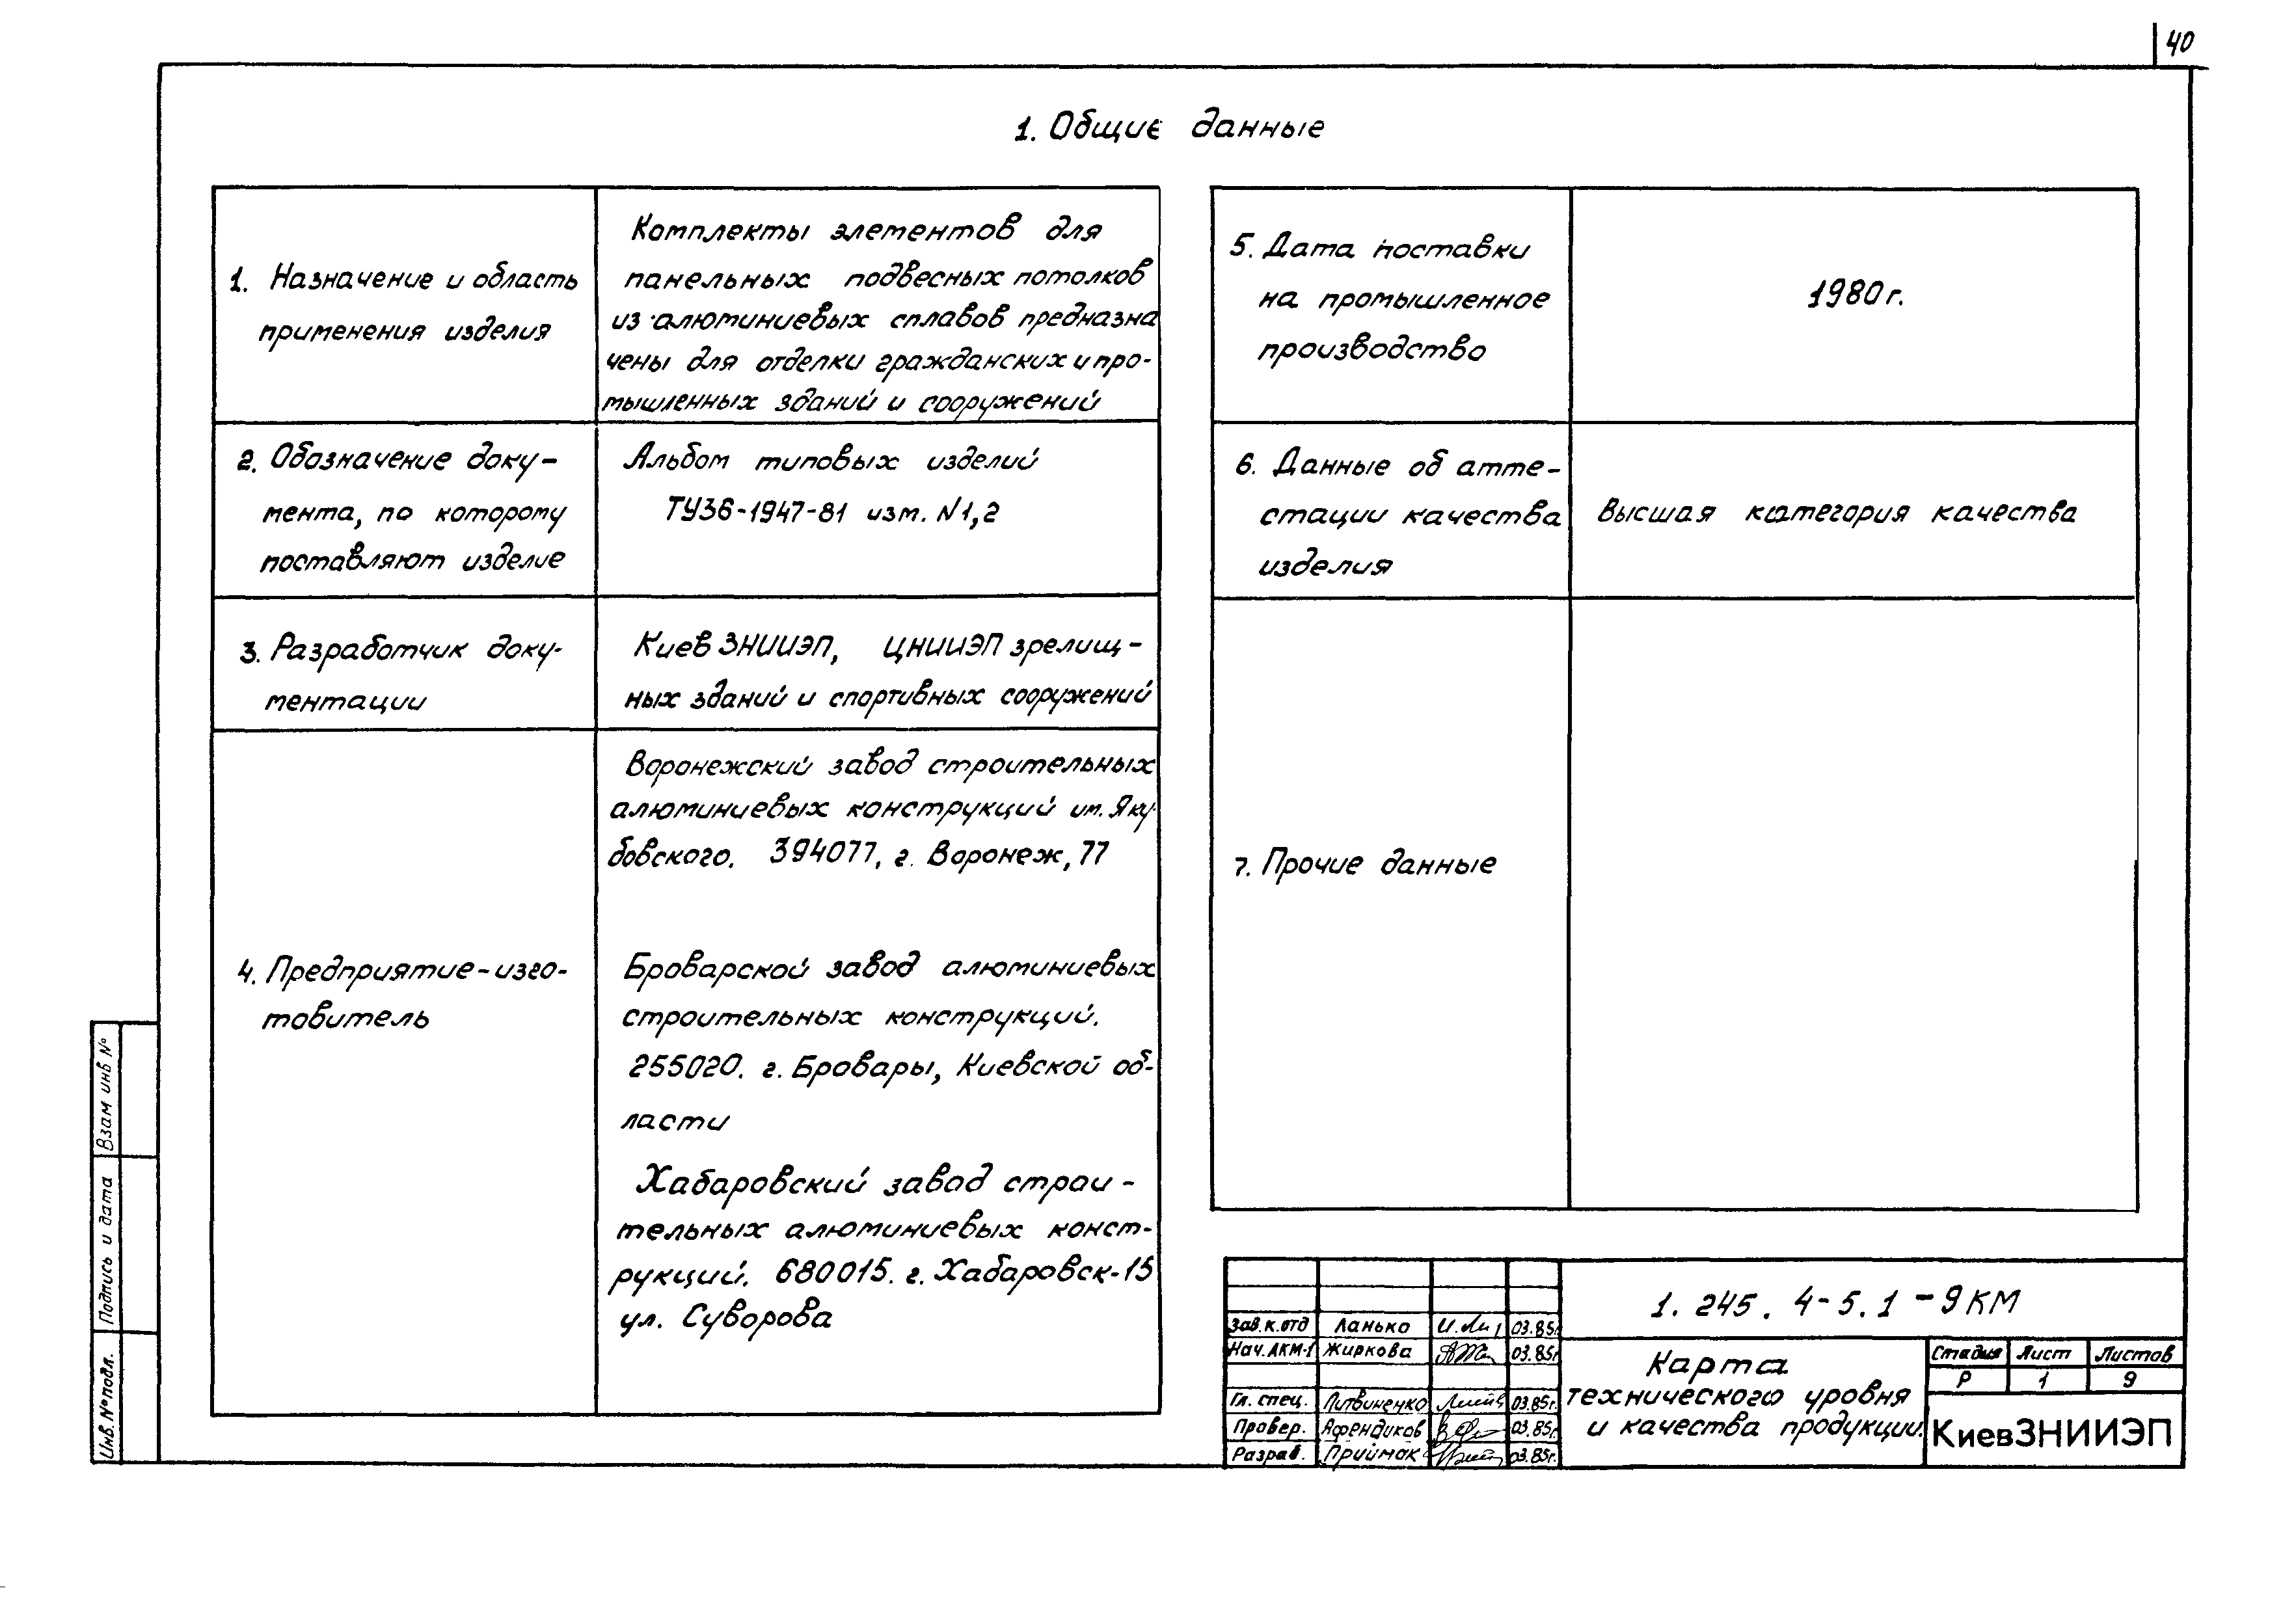 40
1. Общие данные
1. Назначение и область
применения изделия
Комплекты элементов для
панельных подвесных потолков
из алюминиевых сплавов предназна
чены для отделки гражданских и про-
мышленных зданий и сооружений
2. Обозначение доку-
мента, по которому
поставляют изделие
Альбом типовых изделий
ТУ36-1947-81 изм. N1,2
3. Разработчик доку-
ментации
Киев ЗНИИЭП, ЦНИИЭП зрелищ-
ных зданий и спортивных сооружений
4. Предприятие-изго-
товитель
Воронежский завод строительных
алюминиевых конструкций им. Яку-
бовского. 394077, г. Воронеж, 77
Броварской завод алюминиевых
строительных конструкций.
255020. г. Бровары, Киевской об-
ласти
Хабаровский завод строи-
тельных алюминиевых конст-
рукций. 680015. г. Хабаровск-15
ул. Суворова
5. Дата поставки
на промышленное
производство
1980 г.
6. Данные об атте-
стации качества
изделия
Высшая категория качества
7. Прочие данные
Взам инв №
Подпись и дата
Инв. № подл.
Зав. к. отд Ланько 03.85г.
Нач. АКМ-1 Жиркова 03.85г
Гл. спец. Литвиненко 03.85г.
Провер. Афендиков 03.85г.
Разраб. Приймак 03.85г.
1.245.4-5.1-9КМ
Карта
технического уровня
и качества продукции.
Стадия Лист Листов
Р 1 9
КиевЗНИИЭП